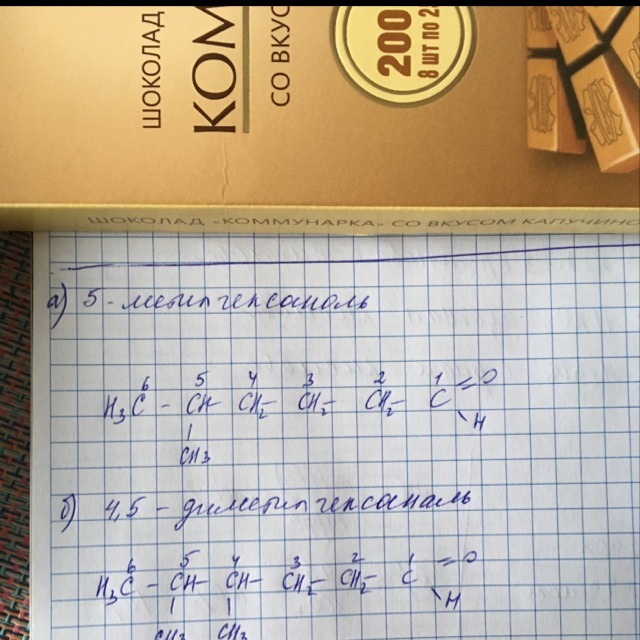 ШОКОЛАД
КОМ
СО ВКУС
200
8 ШТ ПО 2
ШОКОЛАД «КОММУНАРКА» СО ВКУСОМ КАПУЧИНО
а) 5-метилгексаналь
6 5 4 3 2 1
H₃C - CH - CH₂ - CH₂ - CH₂ - C = O
\ H
|
CH₃
б) 4,5-диметилгексаналь
6 5 4 3 2 1
H₃C - CH - CH - CH₂ - CH₂ - C = O
| | \ H
CH₃ CH₃